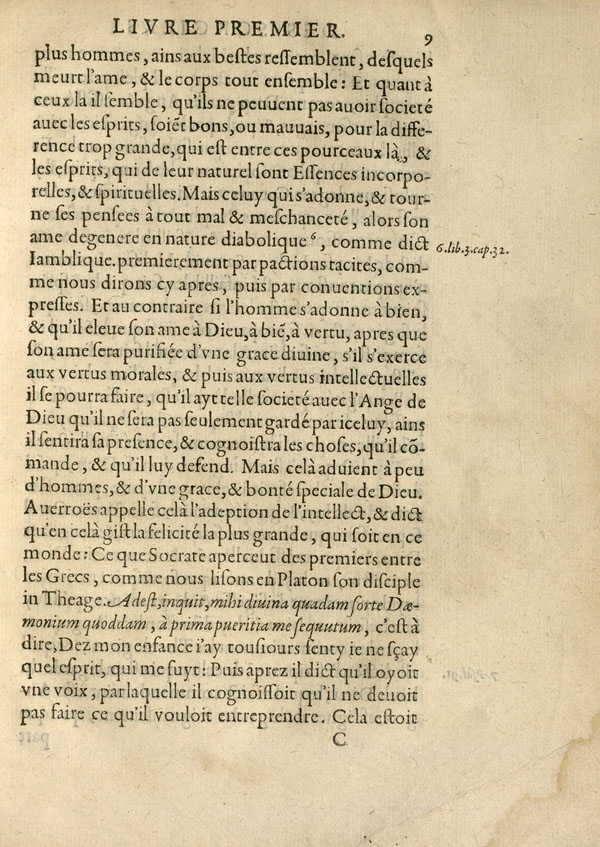 LIVRE PREMIER.
9
plus hommes, ains aux bestes ressemblent, desquels
meurt l'ame, & le corps tout ensemble: Et quant à
ceux la il semble, qu'ils ne peuuent pas auoir societé
auec les esprits, soiẽt bons, ou mauuais, pour la diffe-
rence trop grande, qui est entre ces pourceaux là, &
les esprits, qui de leur naturel sont Essences incorpo-
relles, & spirituelles. Mais celuy qui s'adonne, & tour-
ne ses pensees à tout mal & meschanceté, alors son
ame degenere en nature diabolique⁶, comme dict
6. lib. 3. cap. 32.
Iamblique. premierement par pactions tacites, com-
me nous dirons cy apres, puis par conuentions ex-
presses. Et au contraire si l'homme s'adonne à bien,
& qu'il eleue son ame à Dieu, à biẽ, à vertu, apres que
son ame sera purifiée d'vne grace diuine, s'il s'exerce
aux vertus morales, & puis aux vertus intellectuelles
il se pourra faire, qu'il ayt telle societé auec l'Ange de
Dieu qu'il ne sera pas seulement gardé par iceluy, ains
il sentira sa presence, & cognoistra les choses, qu'il cõ-
mande, & qu'il luy defend. Mais celà aduient à peu
d'hommes, & d'vne grace, & bonté speciale de Dieu.
Auerroës appelle celà l'adeption de l'intellect, & dict
qu'en celà gist la felicité la plus grande, qui soit en ce
monde: Ce que Socrate aperceut des premiers entre
les Grecs, comme nous lisons en Platon son disciple
in Theage. Adest, inquit, mihi diuina quadam sorte Dæ-
monium quoddam, à prima pueritia me sequutum, c'est à
dire, Dez mon enfance i'ay tousiours senty ie ne sçay
quel esprit, qui me fuyt: Puis aprez il dict qu'il oyoit
vne voix, par laquelle il cognoissoit qu'il ne deuoit
pas faire ce qu'il vouloit entreprendre. Cela estoit
C